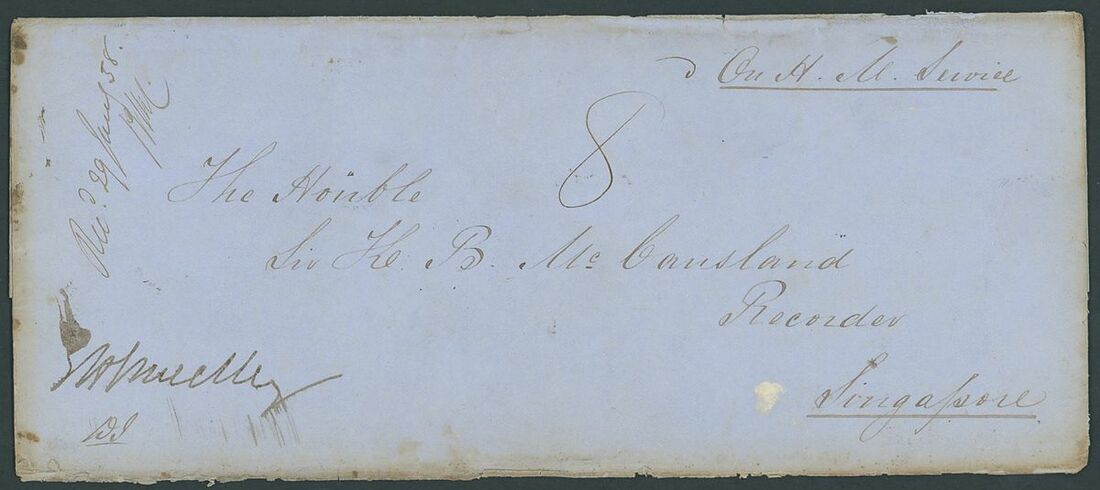 On H. M. Service
8
The Honble
Sir H. B. McCausland
Recorder
Singapore
Recd. 29 Jany 58.